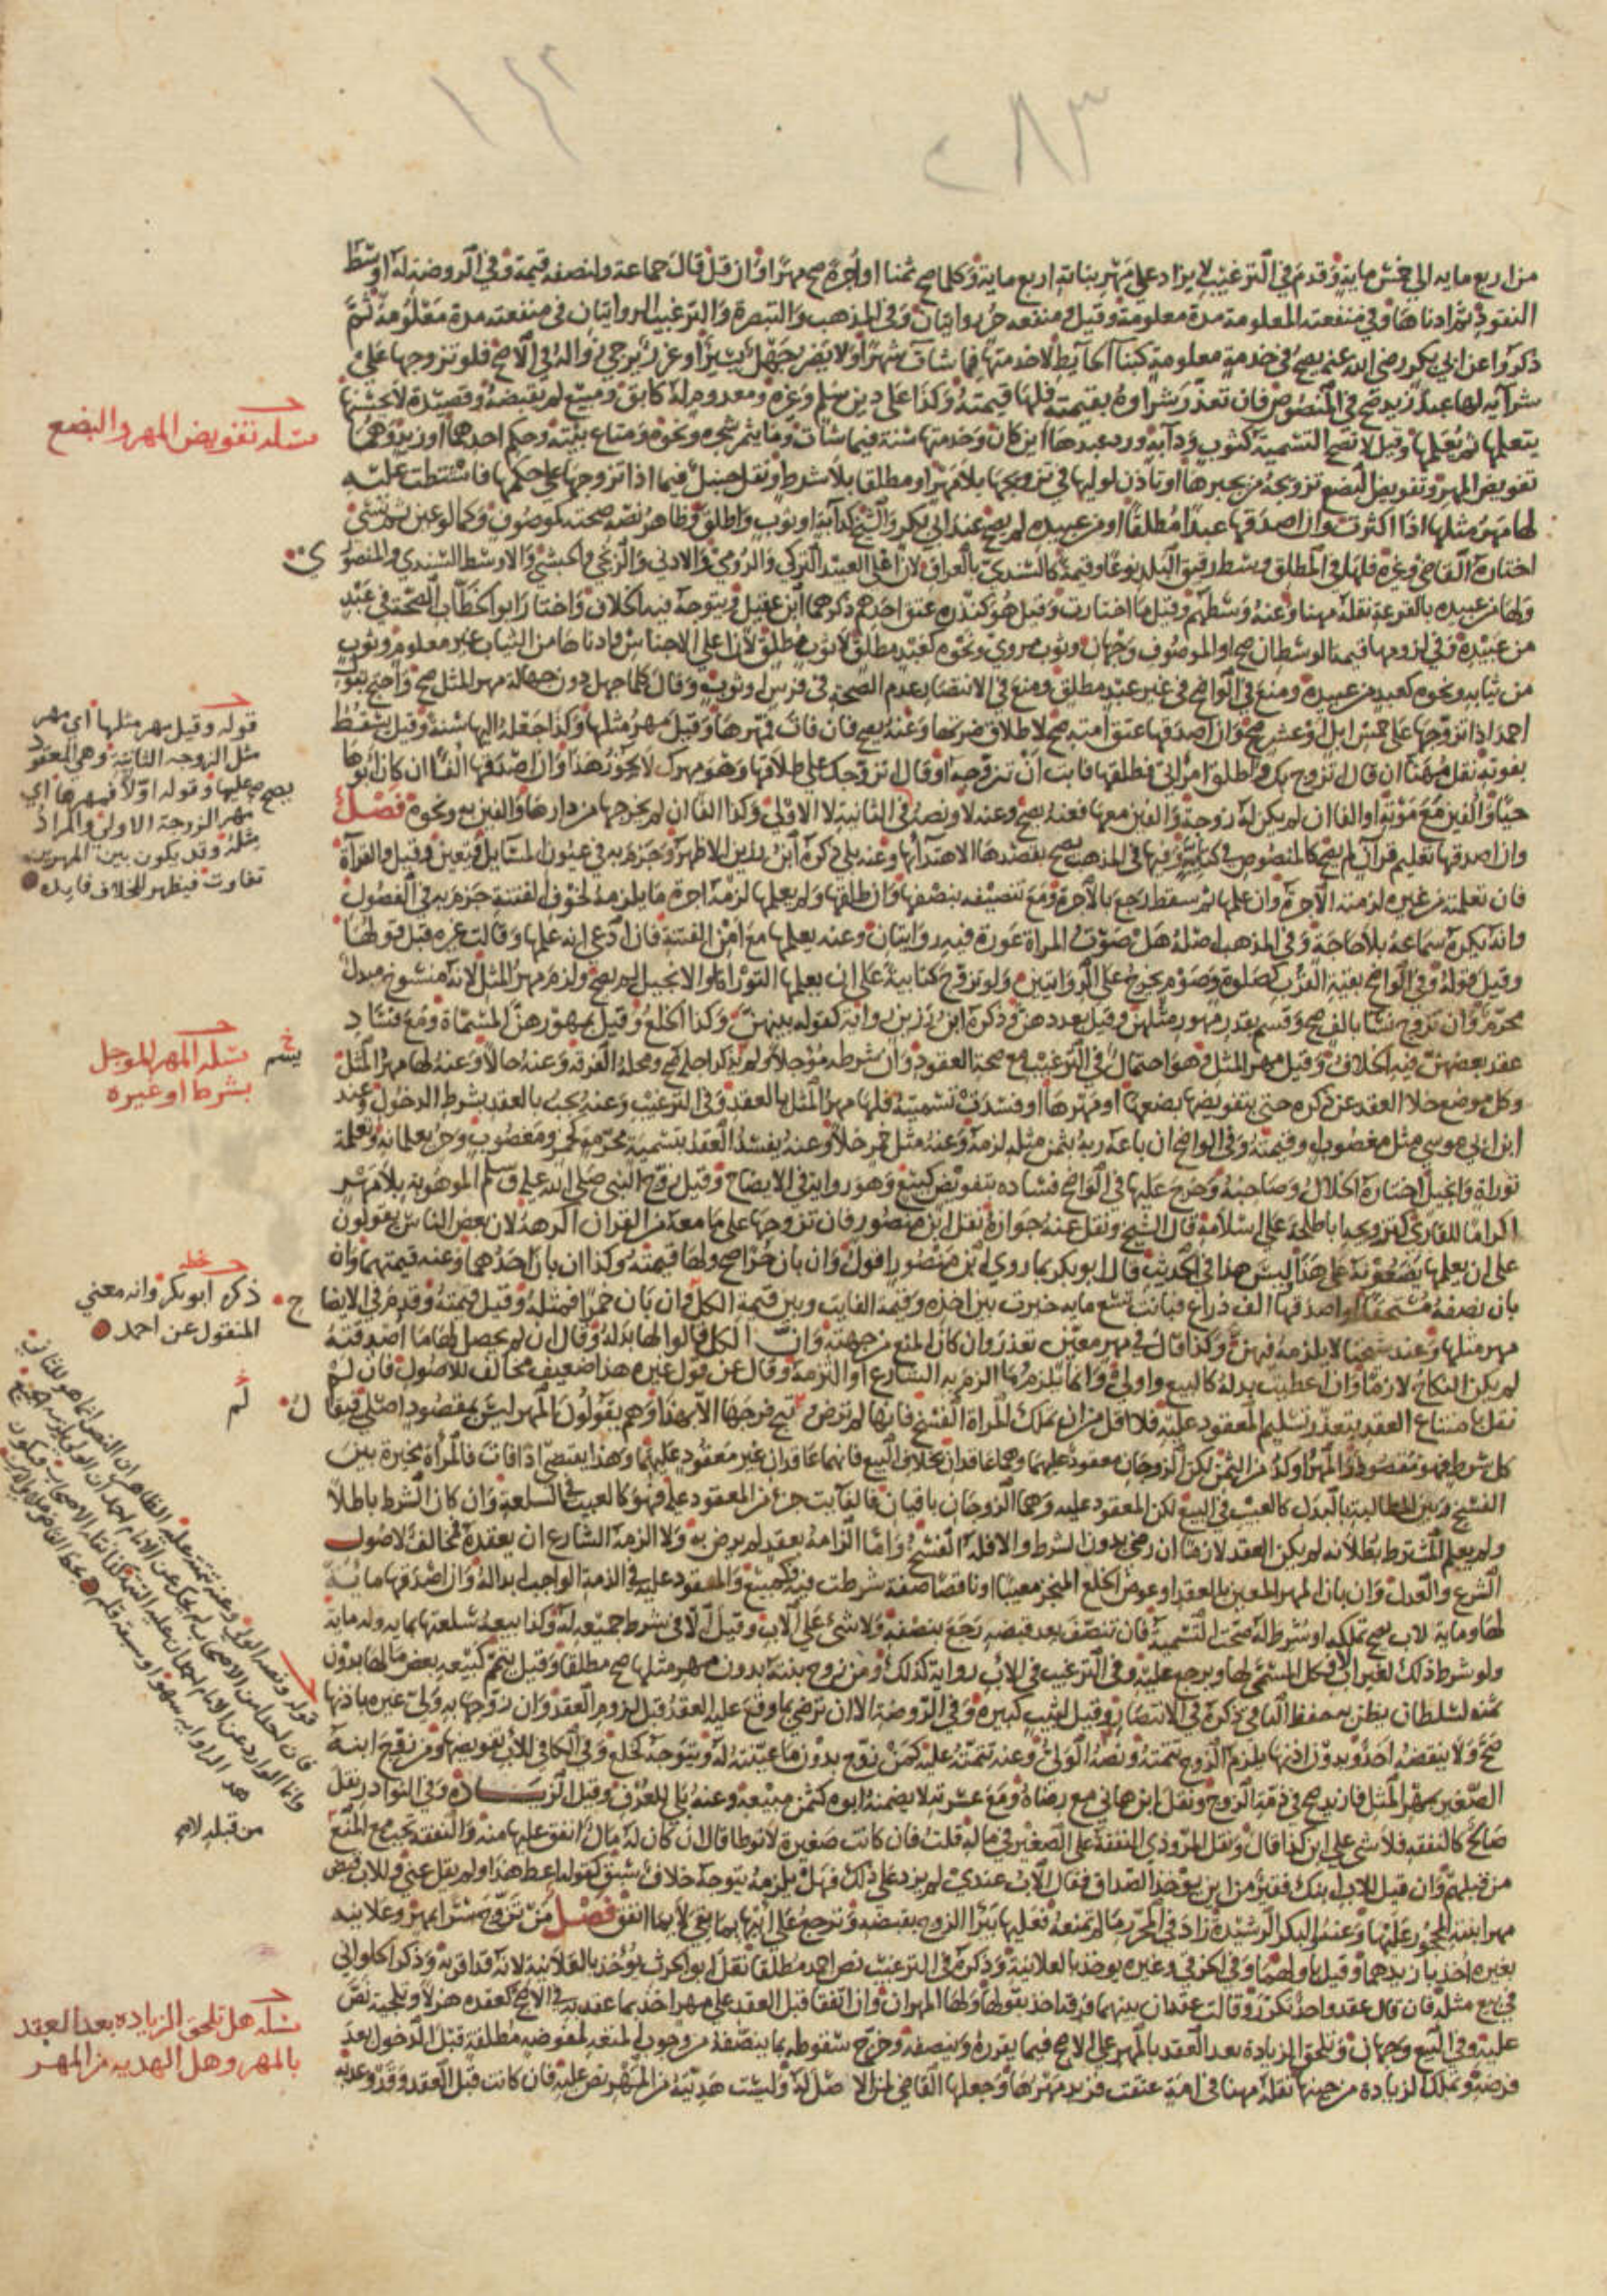 ١٤٢
٢٨٣
من اربع مايه الى خمس مايه وقدم في الترغيب لا يزاد على مهر بناته اربع مايه وكلما صح ثمنا او اجرة صح مهرا وان قل قال جماعة ولنصفه قيمة وفي الروضة له اوسط
النقود ثم ادناها وفي منفعته المعلومة مدة معلومة وقيل ومنفعه حر روايتان وفي المذهب والتبصرة والترغيب الروايتان في منفعته مدة معلومة ثم
ذكروا عن ابي بكر رضي الله عنه يصح في خدمة معلومة كبناء حايط لا خدمتها فيما شات شهرا ولا يضر جهل يسير او غرر يرجى زواله في الاصح فلو تزوجها على
شرايه لها عبد زيد صح في المنصوص فان تعذر شراوه بقيمته فلها قيمته وكذا على دين سلم وغيره ومعدوم له كابق ومبيع لم يقبضه وقصيدة لا يحسنها
يتعلمها ثم يعلمها وقيل لا تصح التسمية كثوب ودابة ورد عبدها اين كان وخدمتها سنة فيما شات وما يثمر شجره ونحوه ومتاع بيته وحكم احدهما او زيد وهما
تفويض المهر وتفويض البضع تزويجه من يجبرها او تاذن لوليها في تزويجها بلا مهر او مطلقا بلا شرط ونقل حنبل فيما اذا تزوجها على حكمها فاشتطت عليه
لها مهر مثلها اذا اكثرت وان اصدقها عبدا مطلقا او من عبيده لم يصح عند ابي بكر والشيخ كدابة او ثوب واطلق وظاهر نصه صحته كموصوف وكما لو عين ثم نسي
اختاره القاضي وغيره فلها في المطلق وسط رقيق البلد نوعا وقيمة كالسندي بالعراق لان اعلى العبيد التركي والرومي والادنى الزنجي والحبشي والاوسط السندي والمنصوري
ولها من عبيده بالقرعة نقله مهنا وعنه وسطهم وقيل ما اختارت وقيل هو كنذره عتق احدهم ذكرهما ابن عقيل ويتوجه فيه الخلاف واختار ابو الخطاب الصحة في عبد
من عبيده وفي لزومها قيمة الوسط ان صح او الموصوف وجهان وثوب مروي ونحوه كعبد مطلق لا ثوب مطلق لان اعلى الاجناس وادناها من الثياب غير معلوم وثوب
من ثيابه ونحوه كعبد من عبيده ومنع في الواضح في غير عبد مطلق ومنع في الانتصار عدم الصحة في فرس او ثوب وقال كلما جهل دون جهالة مهر المثل صح واحتج بقول
احمد اذا تزوجها على خمس ابل او عشر صح وان اصدقها عتق امته صح لا طلاق ضرتها وعنه يصح فان فات فمهرها وقيل مهر مثلها وكذا جعله اليها سنة وقيل يسقط
بفوته نقل مهنا ان قال اتزوج بك واطلق امراتي فطلقها فابت ان تتزوجه او قال اتزوجك على طلاقها وهو مهرك لا يجوز هذا وان اصدقها الفا ان كان ابوها
حيا والفين مع موته او الفا ان لم يكن له زوجة والفين معها فعنه يصح وعنه لا ونصه في الثانية لا الاولى وكذا الفا ان لم يخرجها من دارها والفين به ونحوه فصل
وان اصدقها تعليم قران لم يصح كالمنصوص في كتابية وفيها في المذهب يصح بقصدها الاهتدا به وعنه بلى ذكره ابن رزين الاظهر وجزم به في عيون المسايل فتعين وقيل والقراة
فان تعلمته من غيره لزمته الاجرة وان علمها ثم سقط رجع بالاجرة ومع تنصيفه بنصفها وان طلقها ولم يعلمها لزمه اجرة ما يلزمه لخوف الفتنة جزم به في الفصول
وانه يكره سماعه بلا حاجة وفي المذهب اصله هل صوت المراة عورة فيه روايتان وعنه يعلمها مع امن الفتنة فان ادعى انه علمها وقالت غيره قبل قولها
وقيل قوله وفي الواضح بقية القرب كصلوة وصوم يخرج على الروايتين ولو تزوج كتابية على ان يعلمها التوراة او الانجيل لم يصح ولزم مهر المثل لانه منسوخ مبدل
محرم وان تزوج نسا بالف صح وقسم بقدر مهور مثلهن وقيل بعددهن وذكره ابن رزين رواية كقوله بينهن وكذا الخلع وقيل بمهورهن المسماة ومع فساد
عقد بعضهن فيه الخلاف وقيل مهر المثل وهو احتمال في الترغيب مع صحة العقود وان شرطه مؤجلا ولم يذكر اجله صح ومحله الفرقة وعنه حالا وعنه لها مهر المثل
وكل موضع خلا العقد عن ذكره حتى بتفويضها بضعها او مهرها او فسدت تسميته فلها مهر المثل بالعقد وفي الترغيب وعنه يجب بالعقد بشرط الدخول وعند
ابن ابي موسى مثل مغصوب او قيمته وفي الواضح ان باعه ربه بثمن مثله لزمه وعنه مثل خمر خلا وعنه يفسد العقد بتسمية محرمة كخمر ومغصوب وحر يعلمانه وتعلمه
توراة وانجيل اختاره الخلال وصاحبه وخرج عليها في الواضح فساده بتفويض كبيع وهو رواية في الايضاح وقيل زوج النبي صلى الله عليه وسلم الموهوبة بلا مهر
اكراما للقاري كتزويجه ابا طلحة على اسلامه قال الشيخ ونقل عنه جوازه نقل ابن منصور فان تزوجها على ما معه من القران اكرهه لان بعض الناس يقولون
على ان يعلمها يضعونه على هذا ليس هذا في الحديث قال ابو بكر بما روى ابن منصور اقول وان بان حرا صح ولها قيمته وكذا ان بان احدهما وعنه قيمتهما وان
بان نصفه مستحقا او اصدقها الف ذراع فبانت تسع مايه خيرت بين اخذه وقيمة الفايت وبين قيمة الكل فان بان خمرا فمثله وقيل قيمته وقدم في الايضاح
مهر مثلها وعند شيخنا لا يلزمه فيهن وكذا قال في مهر معين تعذر وان كان المنع من جهته وان الكل قالوا لها بدله وقال ان لم يحصل لها ما اصدقته
لم يكن النكاح لازما وان اعطيت بدله كالبيع واولى وانما يلزم ما الزم به الشارع او التزمه وقال عن قول غيره هذا ضعيف مخالف للاصول فان لم
نقل بامتناع العقد بتعذر تسليم المعقود عليه فلا اقل من ان تملك المراة الفسخ فانها لم ترض وتبح فرجها الا بهذا وهم يقولون المهر ليس بمقصود اصلي فيقال
كل شرط فهو مقصود والمهر اوكد من الثمن لكن الزوجان معقود عليهما وهما عاقدان بخلاف البيع فانهما عاقدان غير معقود عليهما وهذا يقتضي اذا فات فالمراة مخيرة بين
الفسخ وبين المطالبة بالبدل كالعيب في البيع لكن المعقود عليه وهما الزوجان باقيان فالفايت جزء من المعقود عليه فهو كالعيب في السلعة وان كان الشرط باطلا
ولم يعلم المشترط بطلانه لم يكن العقد لازما ان رضي بدون الشرط والا فله الفسخ واما الزامه بعقد لم يرض به ولا الزمه الشارع ان يعقده فمخالف لاصول
الشرع والعدل وان بان المهر المعين بالعقد او عوض الخلع المنجز معيبا او ناقصا صفة شرطت فيه فكمبيع والمعقود عليه في الذمة الواجب ابداله وان اصدقها مايه
لها ومايه لاب يصح تملكه او شرط له صحت التسمية فان تنصف بعد قبضه رجع بنصفه ولا شي على الاب وقيل الا في شرط جميعه له وكذا بيعه سلعتها بمايه وله مايه
ولو شرط ذلك لغير الاب فكل المسمى لها ويرجع عليه وفي الترغيب في الاب رواية كذلك ومن زوج بنته بدون مهر مثلها صح مطلقا وقيل يتمم كبيعه بعض مالها بدون
ثمنه لسلطان يظن به حفظ الباقي ذكره في الانتصار وقيل لثيب كبيرة وفي الروضة الا ان ترضى بما وقع عليه العقد قبل لزوم العقد وان زوجها به ولي غيره باذنها
صح ولا ينقضه احد وبدون اذنها يلزم الزوج تتمته ونصه الولي وعنه تتمته عليه كمن زوج بدون ما عينته له ويتوجه كخلع وفي الكافي للاب تفويضها ومن زوج ابنه
الصغير بمهر المثل فازيد صح في ذمة الزوج ونقل ابن هاني مع رضاه ومع عسرته لا يضمنه ابوه كثمن مبيعه وعنه بلى للعرف وقيل الزيادة وفي النوادر نقل
صالح كالنفقة فلا شي على ابن كذا قال ونقل المروذي النفقة على الصغير في ماله قلت فان كانت صغيرة لا توطا قال ان كان له مال انفق عليها منه والنفقة تجب مع المنع
من قبله وان قيل للاب ابنك فقير من اين يؤخذ الصداق فقال الاب عندي لم يزد على ذلك فهل يلزمه يتوجه خلاف سبق كقوله اعط هذا ولم يقل عني وللاب قبض
مهر ابنته المحجور عليها وعنه والبكر الرشيدة زاد في المحرر ما لم تمنعه فعليها يبرا الزوج بقبضه وترجع على ابيها بما بقي لا بما انفق فصل من تزوج سرا بمهر وعلانية
بغيره اخذ بازيدهما وقيل باولهما وفي الخرقي وغيره يؤخذ بالعلانية وذكره في الترغيب نص احمد مطلقا نقل ابو الحرث يؤخذ بالعلانية لانه قد اقر به وذكر الحلواني
في بيع مثله فان قال عقد واحد تكرر وقالت عقدان بينهما فرقة اخذ بقولها ولها المهران وان اتفقا قبل العقد على مهر اخذ بما عقد به في الاصح كعقده هزلا وتلجية نص
عليه وفي البيع وجهان وتلحق الزيادة بعد العقد بالمهر على الاصح فيما يقرره وينصفه وخرج سقوطه بما ينصفه من وجوب المتعة لمفوضة مطلقة قبل الدخول بعد
فرضه وتملك الزيادة من حينها نقله مهنا في امة عتقت فزيد مهرها وجعلها القاضي لمن الاصل له وليست هدية من المهر نص عليه فان كانت قبل العقد وقد وعدوه
مسئلة تفويض المهر والبضع
قوله وقيل مهر مثلها اي مهر
مثل الزوجه الثانية وهي المعقود
عليها وقوله اولا فمهرها اي
مهر الزوجة الاولى والمراد
مثله وقد يكون بين المهرين
تفاوت فيظهر للخلاف فايده
مسئلة المهر المؤجل
بشرط او غيره
ذكره ابو بكر وانه معنى
المنقول عن احمد
قوله ونصه الولي وعنه تتمته عليه الظاهر ان النص انما هو للثاني
من قبله لاه
مسئلة هل تلحق الزياده بعد العقد
بالمهر وهل الهديه من المهر